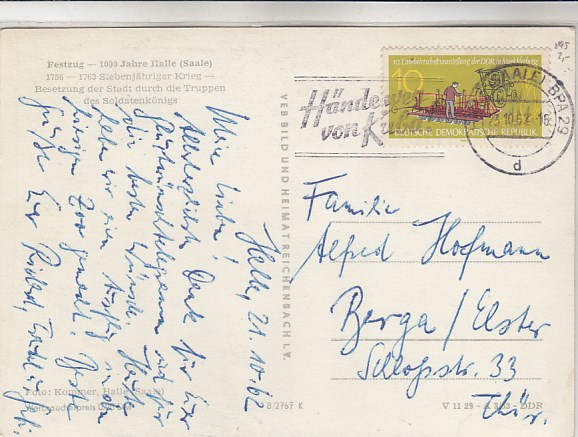 Festzug — 1000 Jahre Halle (Saale)
1756 — 1763 Siebenjähriger Krieg —
Besetzung der Stadt durch die Truppen
des Soldatenkönigs
Halle, 21. 10. 62
Meine Lieben!
Allerherzlichst Dank für Euer
Glückwunschtelegramm und für
die besten Wünsche. Heute
haben wir einen Ausflug in den
hiesigen Zoo gemacht. Beste
Grüße Eure Richard,
Foto: Kommer, Halle (Saale)
Verbraucherpreis
VEB BILD UND HEIMAT REICHENBACH I. V.
8/2767 K
10. Landwirtschaftsausstellung der DDR in Markkleeberg
10
DEUTSCHE DEMOKRATISCHE REPUBLIK
Hände weg
von Kuba
(SAALE) BPA 29
10.62-16
d
Familie
Alfred Hofmann
Berga / Elster
Schloßstr. 33
Thür.
V 11 29 - A 3/62 - DDR